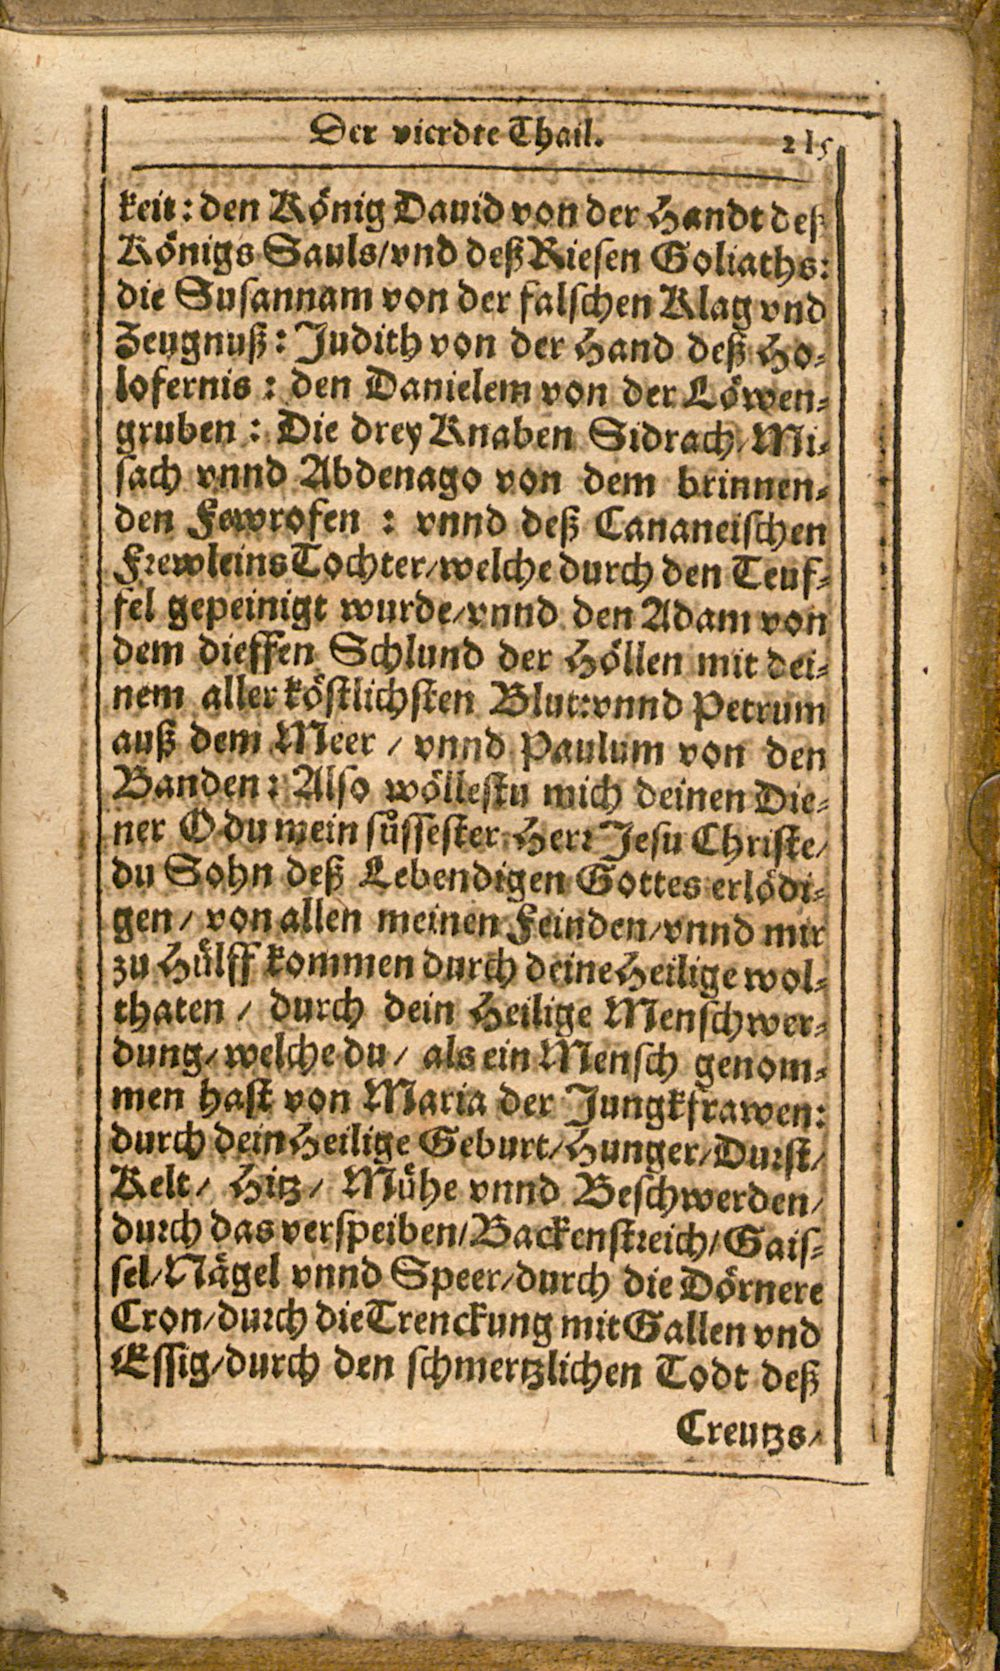 Der vierdte Thail. 215
keit: den König Dauid von der Handt deß
Königs Sauls/vnd deß Riesen Goliaths:
die Susannam von der falschen Klag vnd
Zeugnuß: Judith von der Hand deß Ho-
lofernis: den Danielem von der Löwen-
gruben: Die drey Knaben Sidrach/Mi-
sach vnnd Abdenago von dem brinnen-
den Fewrofen: vnnd deß Cananeischen
Frewleins Tochter/welche durch den Teuf-
fel gepeinigt wurde/vnnd den Adam von
dem dieffen Schlund der Höllen mit dei-
nem aller köstlichsten Blut:vnnd Petrum
auß dem Meer / vnnd Paulum von den
Banden: Also wöllestu mich deinen Die-
ner O du mein süssester Herr Jesu Christe/
du Sohn deß Lebendigen Gottes erlödi-
gen/ von allen meinen Feinden/vnnd mir
zu Hülff kommen durch deine Heilige wol-
thaten / durch dein Heilige Menschwer-
dung/welche du/ als ein Mensch genom-
men hast von Maria der Jungkfrawen:
durch dein Heilige Geburt/Hunger/Durst/
Kelt/ Hitz/ Mühe vnnd Beschwerden/
durch das verspeiben/Backenstreich/Gais-
sel/Nägel vnnd Speer/durch die Dörnere
Cron/durch die Trenckung mit Gallen vnd
Essig/durch den schmertzlichen Todt deß
Creutzs/